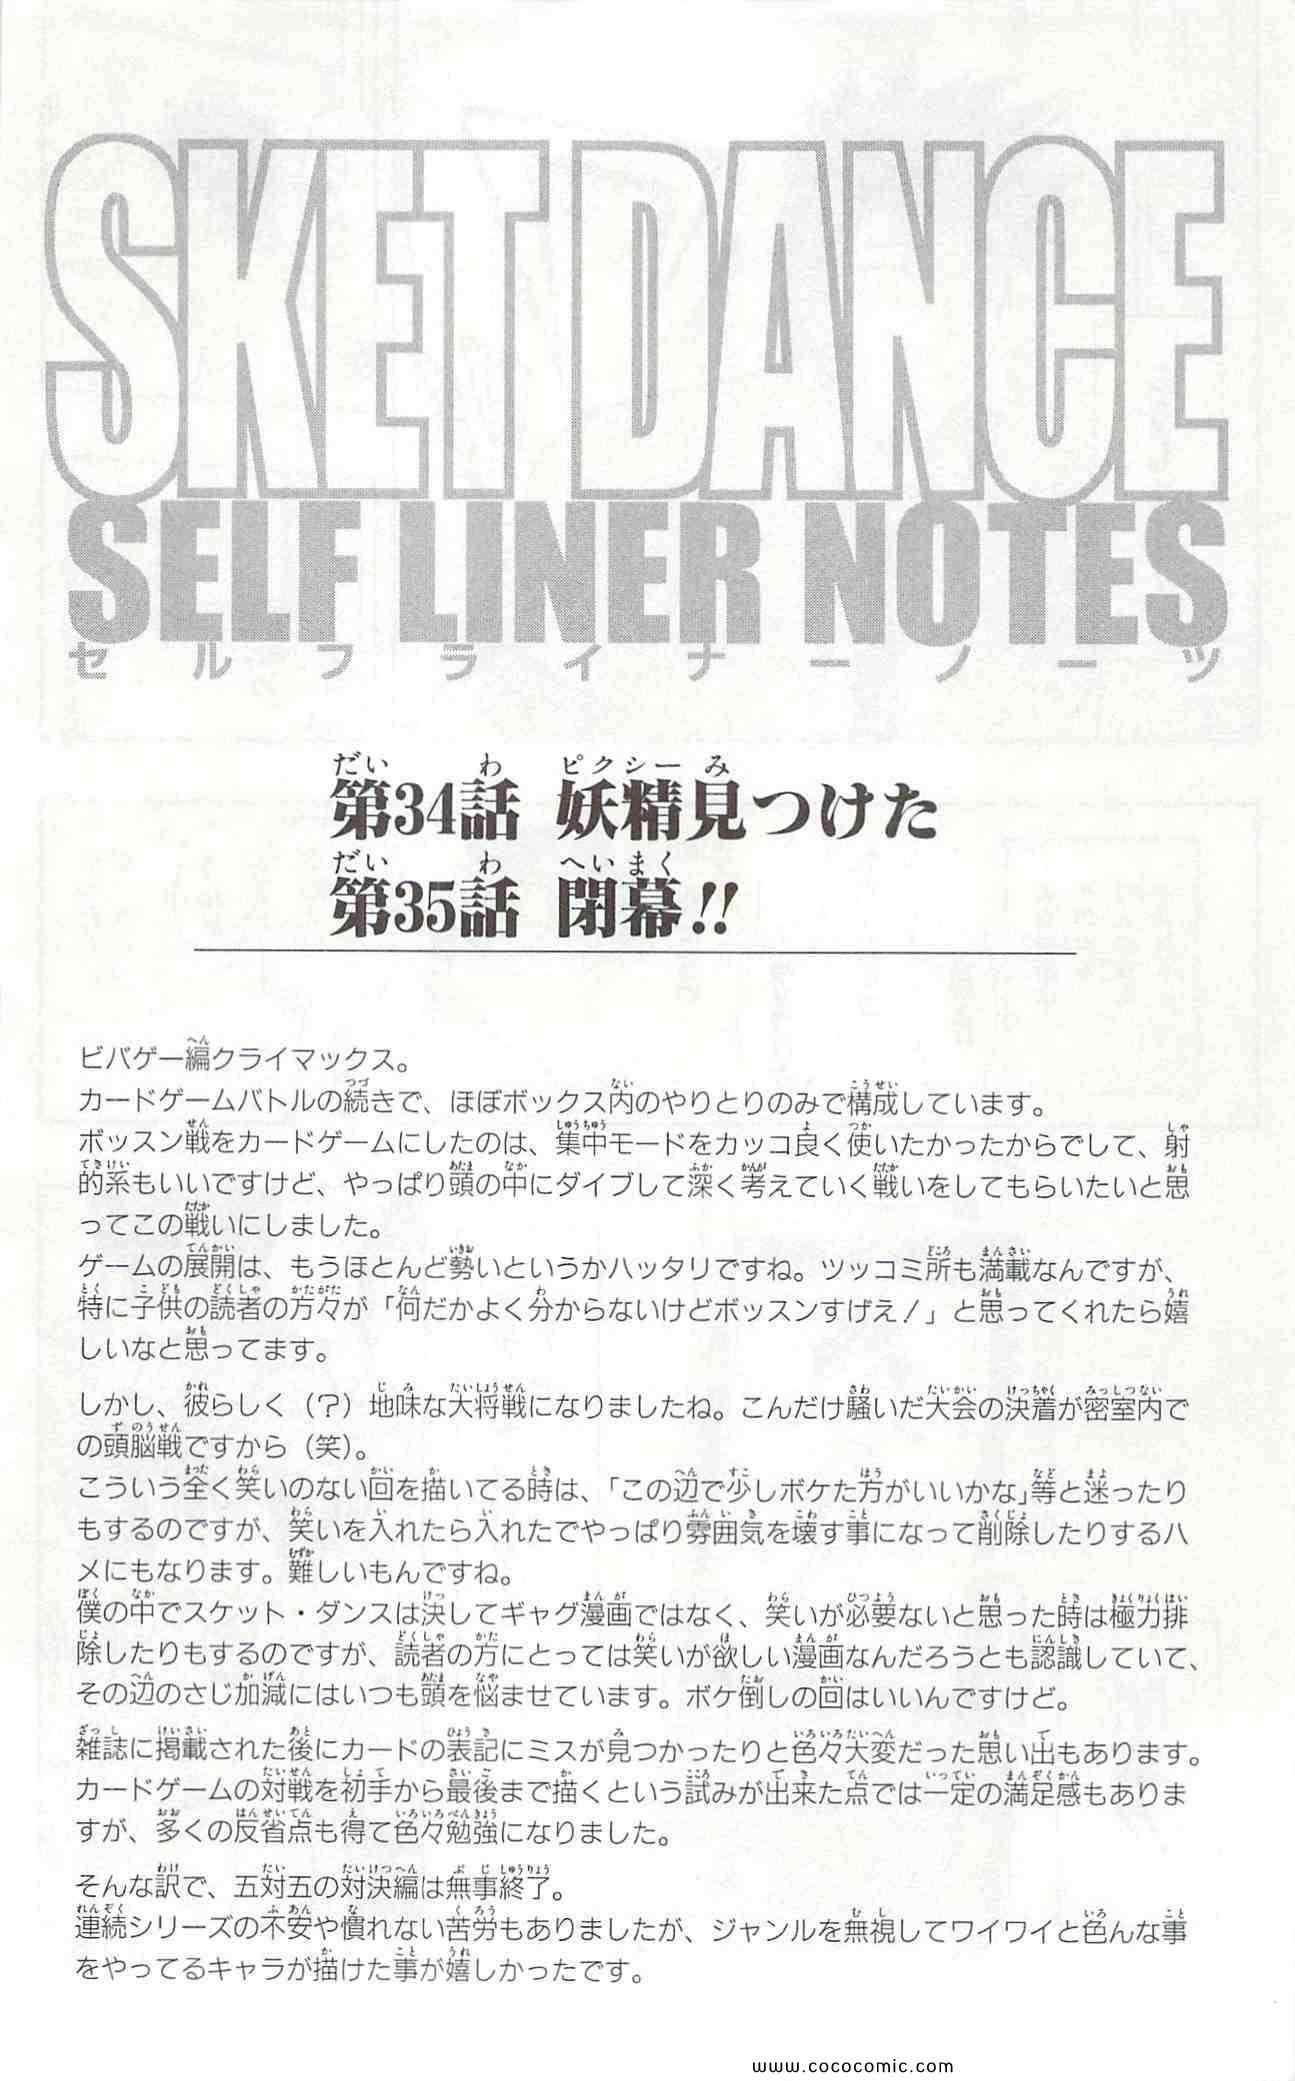 SKET DANCE
SELF LINER NOTES
セルフライナーノーツ
だい わ ピクシー み
第34話 妖精見つけた
だい わ へいまく
第35話 閉幕!!
ビバゲー編クライマックス。
カードゲームバトルの続きで、ほぼボックス内のやりとりのみで構成しています。
ボッスン戦をカードゲームにしたのは、集中モードをカッコ良く使いたかったからでして、射
的系もいいですけど、やっぱり頭の中にダイブして深く考えていく戦いをしてもらいたいと思
ってこの戦いにしました。
ゲームの展開は、もうほとんど勢いというかハッタリですね。ツッコミ所も満載なんですが、
特に子供の読者の方々が「何だかよく分からないけどボッスンすげえ!」と思ってくれたら嬉
しいなと思ってます。
しかし、彼らしく(?)地味な大将戦になりましたね。こんだけ騒いだ大会の決着が密室内で
の頭脳戦ですから(笑)。
こういう全く笑いのない回を描いてる時は、「この辺で少しボケた方がいいかな」等と迷ったり
もするのですが、笑いを入れたら入れたでやっぱり雰囲気を壊す事になって削除したりするハ
メにもなります。難しいもんですね。
僕の中でスケット・ダンスは決してギャグ漫画ではなく、笑いが必要ないと思った時は極力排
除したりもするのですが、読者の方にとっては笑いが欲しい漫画なんだろうとも認識していて、
その辺のさじ加減にはいつも頭を悩ませています。ボケ倒しの回はいいんですけど。
雑誌に掲載された後にカードの表記にミスが見つかったりと色々大変だった思い出もあります。
カードゲームの対戦を初手から最後まで描くという試みが出来た点では一定の満足感もありま
すが、多くの反省点も得て色々勉強になりました。
そんな訳で、五対五の対決編は無事終了。
連続シリーズの不安や慣れない苦労もありましたが、ジャンルを無視してワイワイと色んな事
をやってるキャラが描けた事が嬉しかったです。
www.cococomic.com